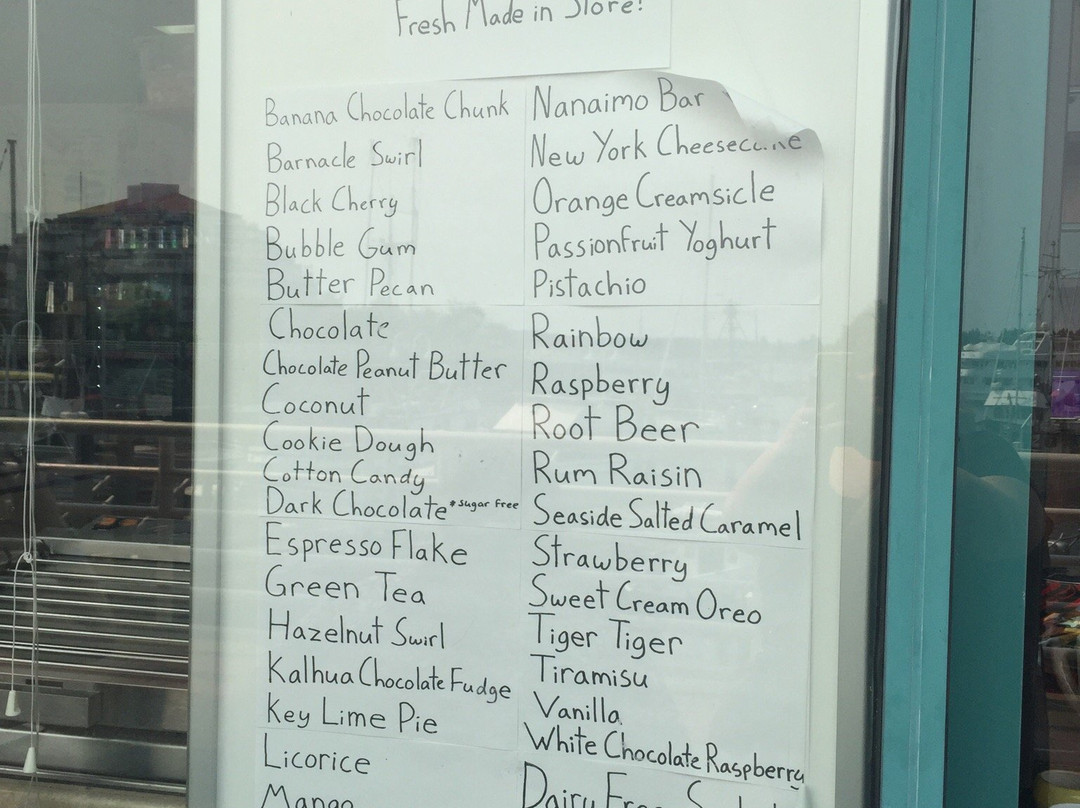 Fresh Made in Store!
Banana Chocolate Chunk
Barnacle Swirl
Black Cherry
Bubble Gum
Butter Pecan
Chocolate
Chocolate Peanut Butter
Coconut
Cookie Dough
Cotton Candy
Dark Chocolate *Sugar Free
Espresso Flake
Green Tea
Hazelnut Swirl
Kalhua Chocolate Fudge
Key Lime Pie
Licorice
Mango
Nanaimo Bar
New York
Orange Creamsicle
Passionfruit Yoghurt
Pistachio
Rainbow
Raspberry
Root Beer
Rum Raisin
Seaside Salted Caramel
Strawberry
Sweet Cream Oreo
Tiger Tiger
Tiramisu
Vanilla
White Chocolate Raspberry
Dairy Free